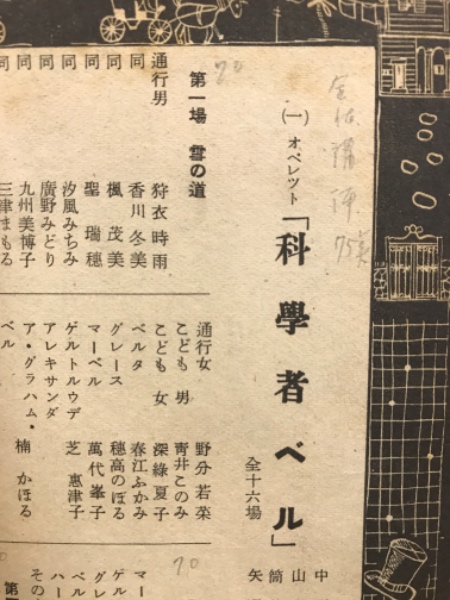 (一) オペレツト「科學者ベル」
全十六場
中
山
筒
矢
第一場 雪の道
通行男 狩衣時雨
同 香川冬美
同 楓茂美
同 聖瑞穂
同 汐風みちみ
同 廣野みどり
同 九州美博子
同 三津まもる
通行女 野分若菜
こども 男 靑井このみ
こども 女 深緑夏子
ベルタ 春江ふかみ
グレース 穂高のぼる
マーベル 萬代峯子
ゲルトルウデ 芝惠津子
アレキサンダ
ア・グラハム・
ベル 楠かほる
マー
ゲル
グレ
ベル
ハー
その
第
70
70